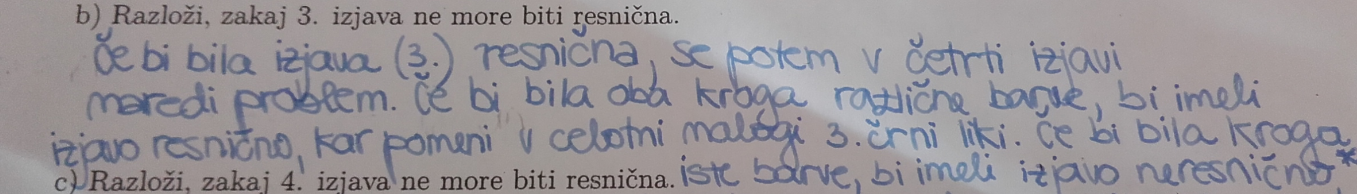 b) Razloži, zakaj 3. izjava ne more biti resnična.
Če bi bila izjava (3.) resnična, se potem v četrti izjavi
naredi problem. Če bi bila oba kroga različne barve, bi imeli
izjavo resnično, kar pomeni v celotni nalogi 3. črni liki. Če bi bila kroga
c) Razloži, zakaj 4. izjava ne more biti resnična. iste barve, bi imeli izjavo neresnično*